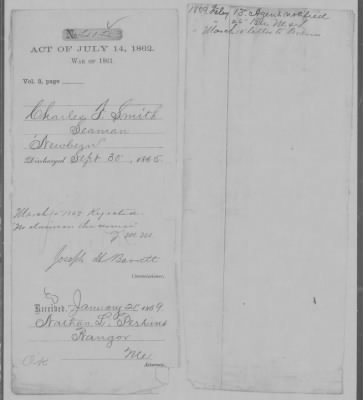 No.
ACT OF JULY 14, 1862.
WAR OF 1861.
Vol. 3, page
Charles F. Smith
Seaman
"Newbern"
Discharged Sept 30, 1865
March 10 1869 Rejected
No claim on the
Joseph H Barrett
Commissioner.
Received, January 25 1869
Nathan L. Perkins
Bangor
Me
Attorney.
OK
1869 Feby 13. Agent notified
" March 10 letter to Perkins